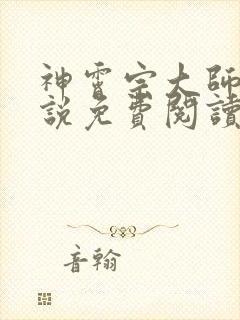 神霄宗大師
說免費閱讀
音翰